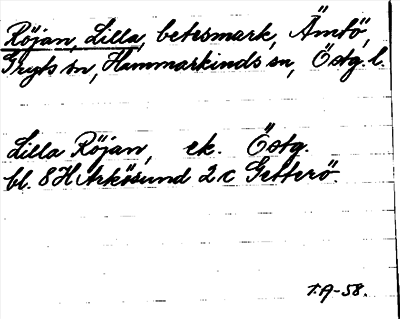 Röjan, Lilla, betesmark, Ämtö,
Gryts sn, Hammarkinds sn, Östg. l.
Lilla Röjan, ek. Östg.
bl. 8H Arkösund 2c Getterö.
T.A-58.